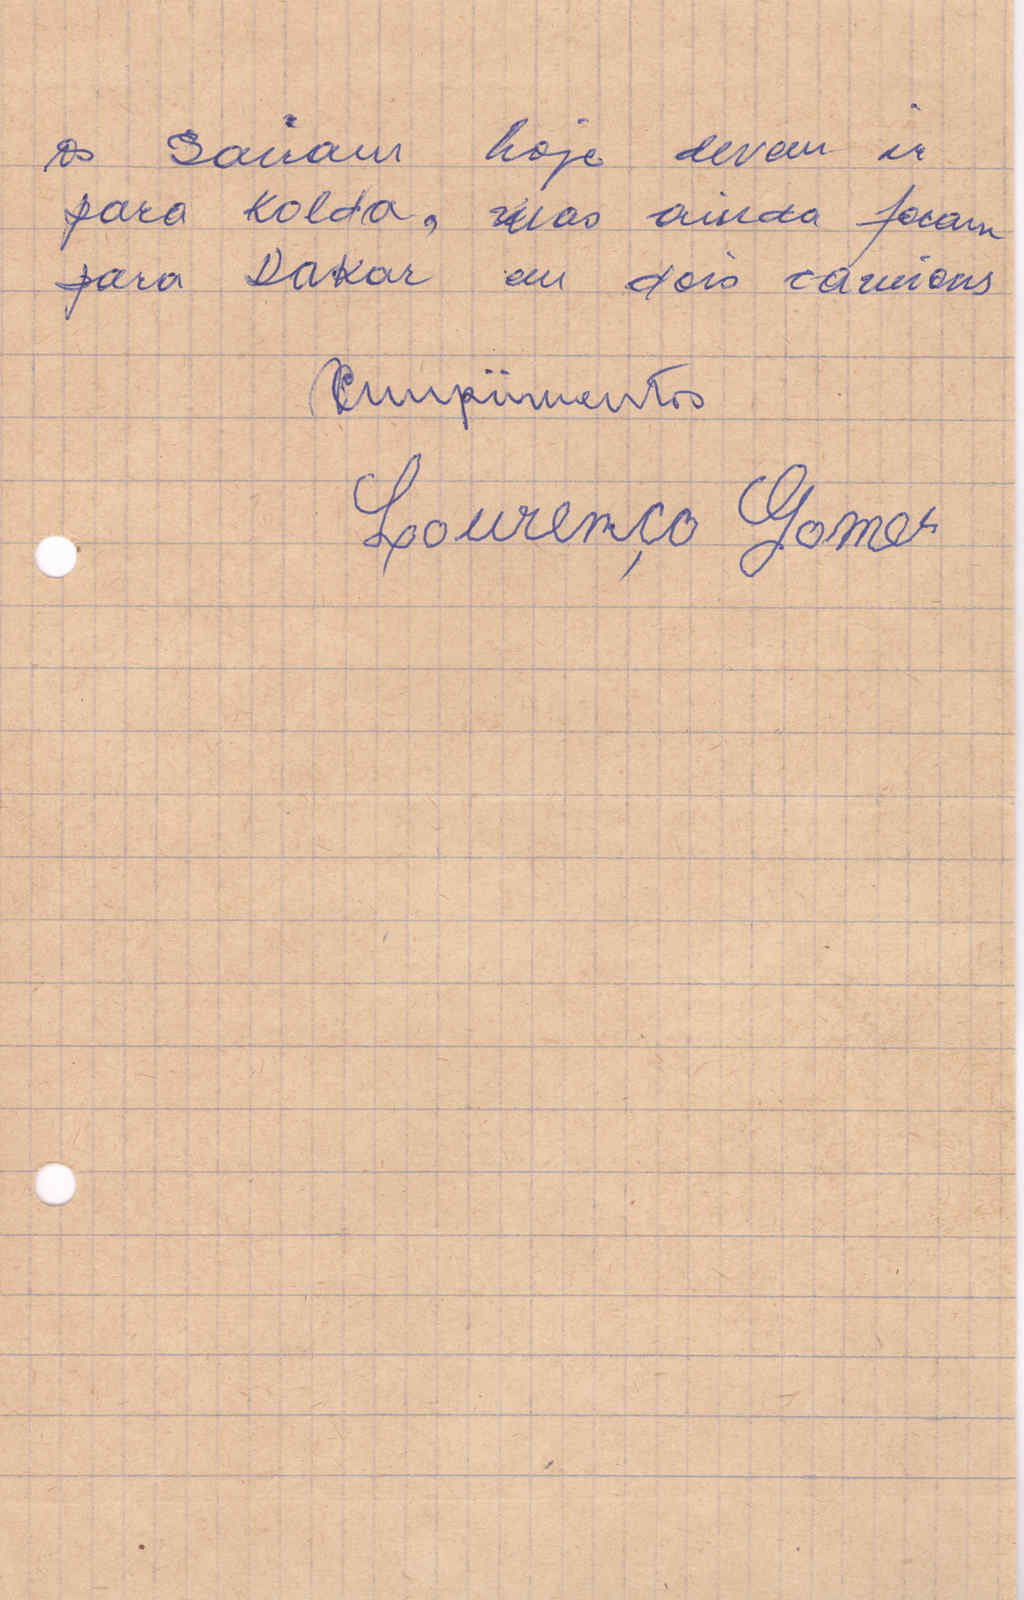 os Sairam hoje devem ir
para Kolda, mas ainda foram
para Dakar em dois camions
Cumprimentos
Lourenço Gomes